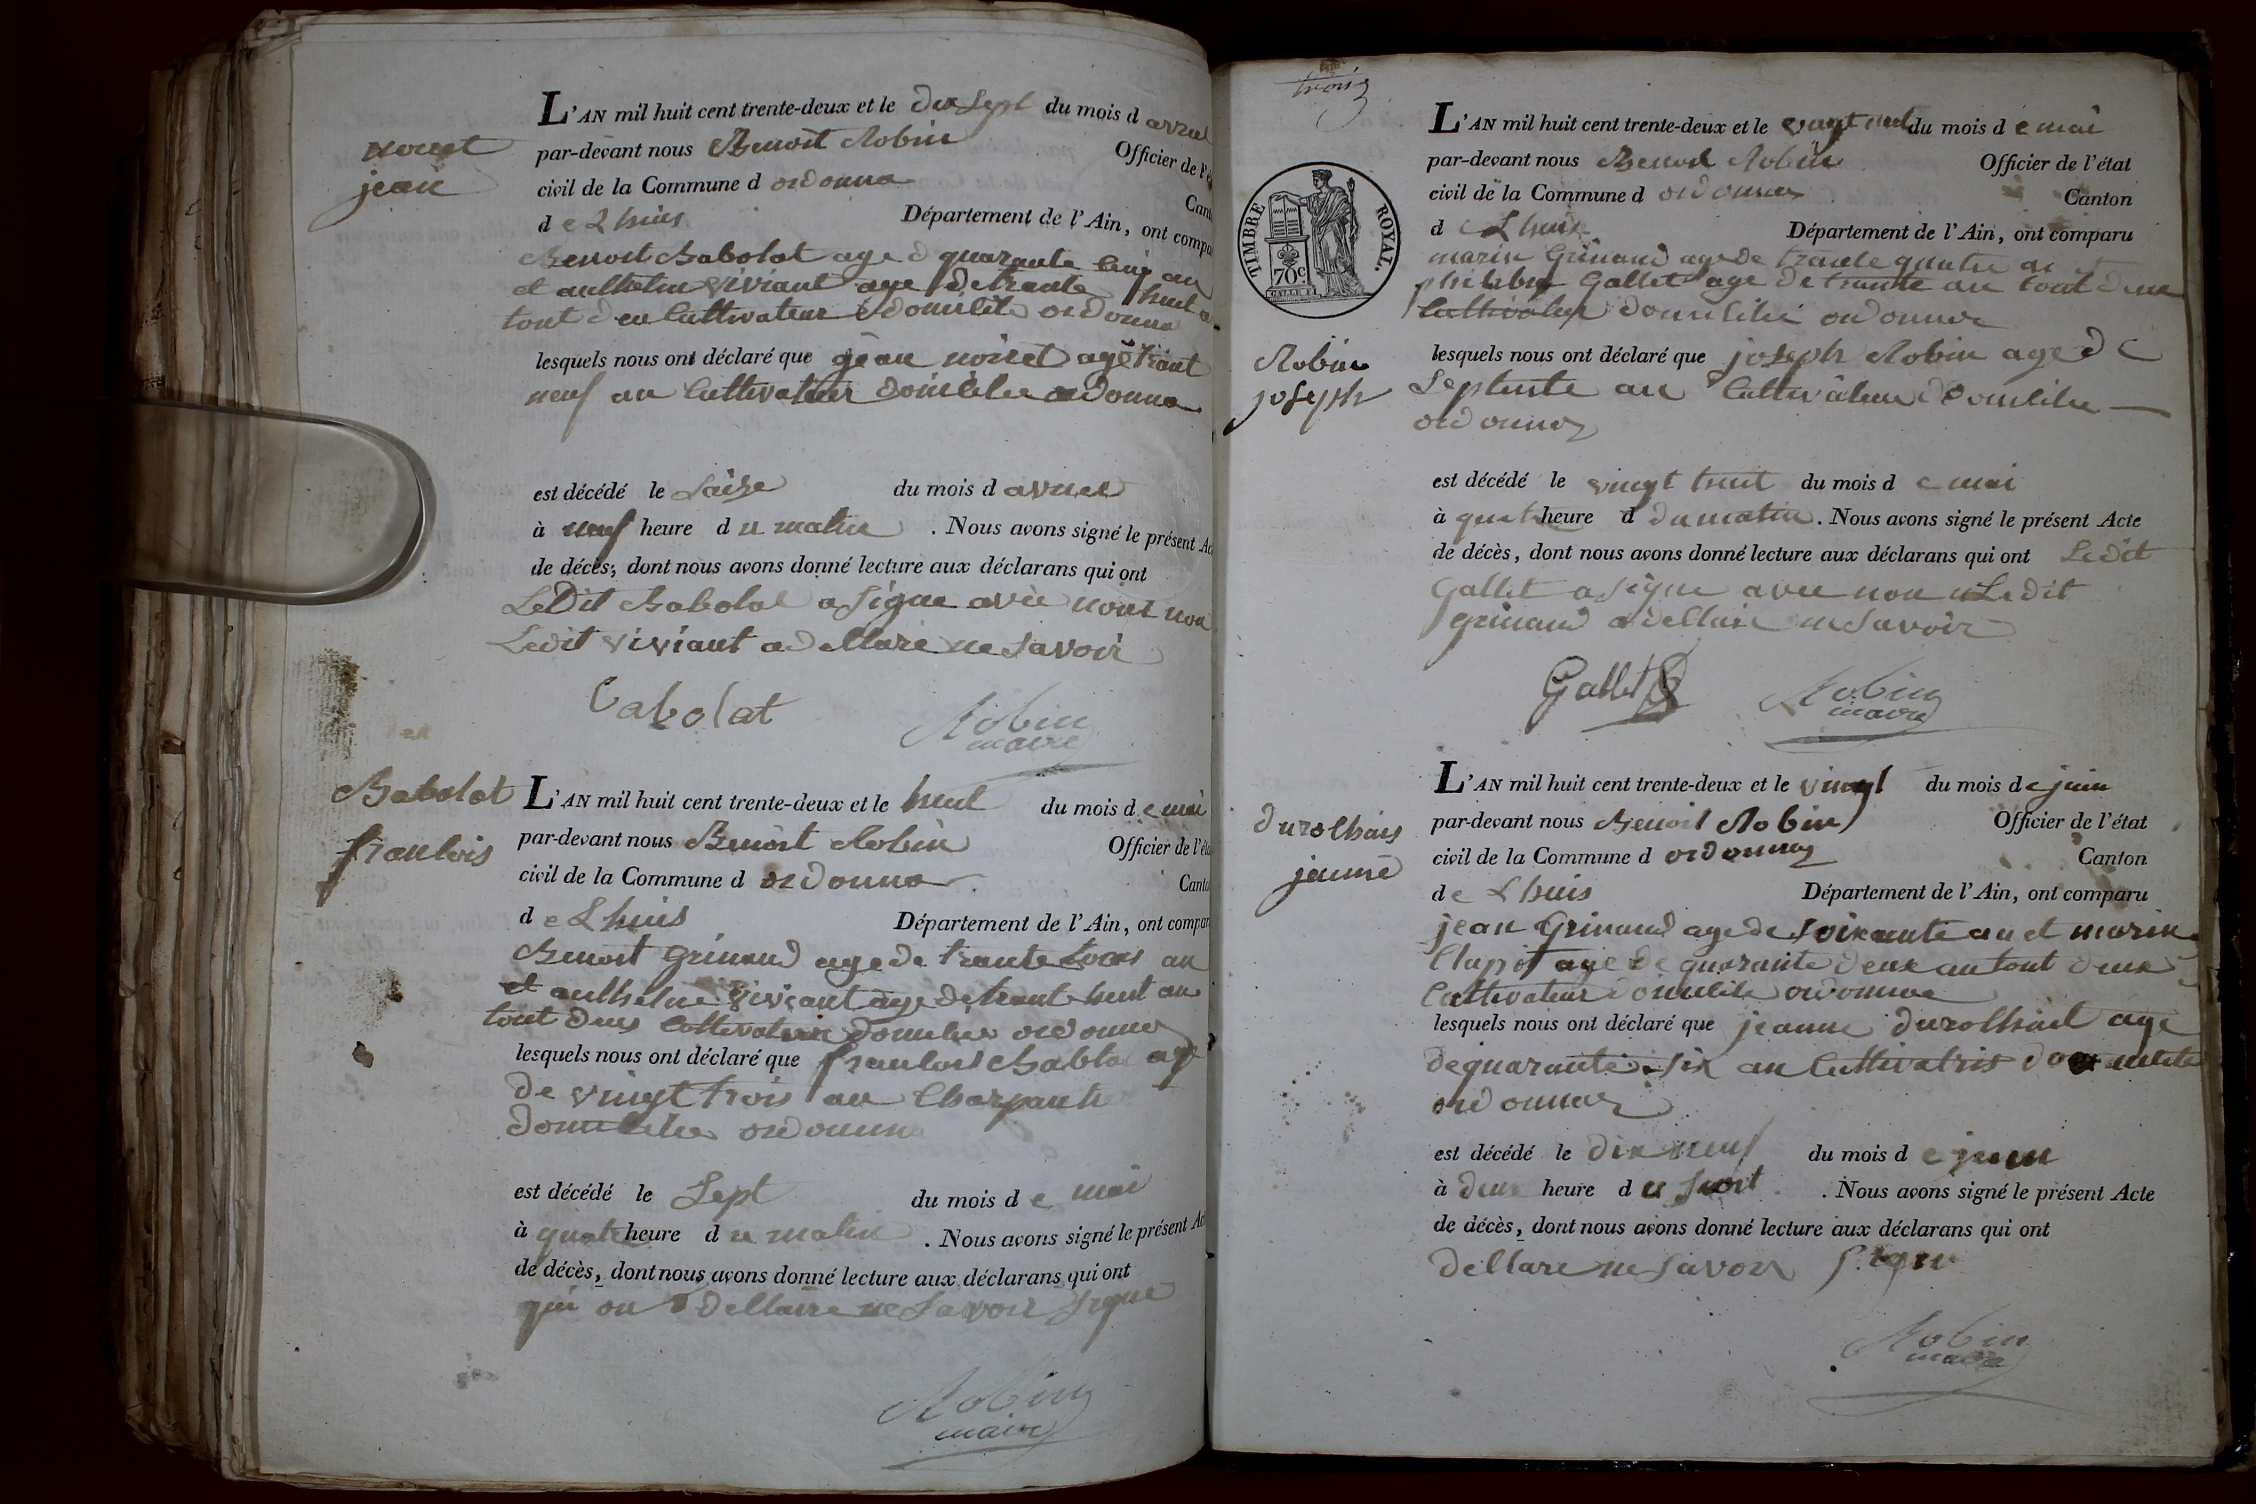 nouet
jean
L'AN mil huit cent trente-deux et le dix Sept du mois d avril
par-devant nous Benoit Robin Officier de l'é
civil de la Commune d ordonna Cant
d e Lhuis Département de l'Ain, ont compa
Benoit Babolat age d quarante an
et anthelme viviant age de trante huit
tout deu Cultivateur domicilie ordonna
lesquels nous ont déclaré que jean nouet agé trant
neuf an Cultivateur domicilie ordonna
est décédé le Saize du mois d avriel
à neuf heure d u matin . Nous avons signé le présent Ac
de décès, dont nous avons donné lecture aux déclarans qui ont
LeDit Babolat a Signe avec nout non
Ledit viviant a dellare ne Savoir
Babolat
Robin
maire
Babolat
franlois
L'AN mil huit cent trente-deux et le huit du mois d e mai
par-devant nous Benoit Robin Officier de l'éta
civil de la Commune d ordonna Canto
d e Lhuis Département de l'Ain, ont compar
Benoit Grinand age de trante an
et anthelme viviant age de trant huit an
tout deus Cultivateur domicilie ordonna
lesquels nous ont déclaré que franlois Babola age
de vingt trois an Charpantie
domicilie ordonna
est décédé le Sept du mois d e mai
à quatre heure d u matin . Nous avons signé le présent Ac
de décès, dont nous avons donné lecture aux déclarans qui ont
qui on dellaire ne Savoir Signe
Robin
maire
trois
TIMBRE ROYAL.
70 c.
Robin
joseph
L'AN mil huit cent trente-deux et le vingt neuf du mois d e mai
par-devant nous Benoit Robin Officier de l'état
civil de la Commune d ordonna Canton
d e Lhuis Département de l'Ain, ont comparu
marin Grinand age de trante quatre an et
philiber Gallet age de trante an tout deux
Cultivateur domicilié ordonna
lesquels nous ont déclaré que joseph Robin age d e
Septente an Cultivateur domicilie
ordonna
est décédé le vingt huit du mois d e mai
à quatre heure d du matin . Nous avons signé le présent Acte
de décès, dont nous avons donné lecture aux déclarans qui ont Ledit
Gallet a Signe avec nou Ledit
Grinand a dellaire ne Savoir
Gallet
Robin
maire
jeanne
L'AN mil huit cent trente-deux et le vingt du mois d e juin
par-devant nous Benoit Robin Officier de l'état
civil de la Commune d ordonna Canton
d e Lhuis Département de l'Ain, ont comparu
jean Grinand age de soixante an et marin
Clapit age de quarante deux an tout deux
Cultivateur domicilie ordonna
lesquels nous ont déclaré que jeanne age
de quarante six an Cultivatris domicilie
ordonna
est décédé le dix neuf du mois d e juin
à deux heure d u . Nous avons signé le présent Acte
de décès, dont nous avons donné lecture aux déclarans qui ont
dellare ne Savoir Signe
Robin
maire